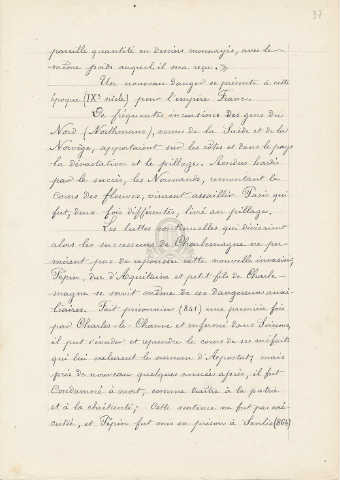 37
pareille quantité en deniers monnayés, avec le
même poids auquel il sera reçu. »
Un nouveau danger se présente à cette
époque (IXe siècle) pour l'empire Franc.
De fréquentes incursions des gens du
Nord (Northmans), venus de la Suède et de la
Norvège, apportaient sur les côtes et dans le pays
la dévastation et le pillage. Rendus hardis
par le succès, les Normands, remontant le
cours des fleuves, vinrent assaillir Paris qui
fut, deux fois différentes, livré au pillage.
Les luttes continuelles qui divisaient
alors les successeurs de Charlemagne ne per-
mirent pas de repousser cette nouvelle invasion.
Pépin, duc d'Aquitaine et petit fils de Charle-
magne se servit même de ces dangereux auxi-
liaires. Fait prisonnier (841) une première fois
par Charles-le-Chauve et enfermé dans Soissons,
il put s'évader et reprendre le cours de ses méfaits
qui lui valurent le surnom d'Apostat; mais
pris de nouveau quelques années après, il fut
Condamné à mort, comme traître à la patrie
et à la chrétienté; Cette sentence ne fut pas exé-
cutée, et Pépin fut mis en prison à Senlis (864)